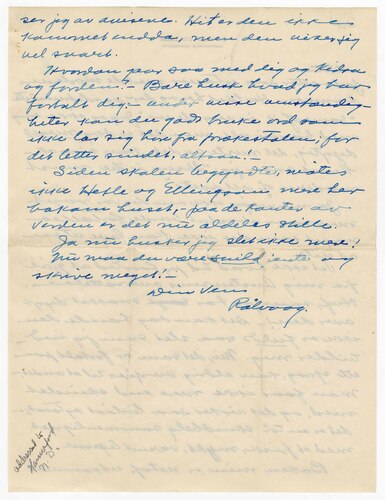 ser jeg av avisene. Hit er den ikke
kommet endda, men den viser jeg
vel snart.
Hvordan gaar saa med dig og
og Jorden? — Bare husk hvad jeg har
fortalt dig: under visse omstændig-
heter kan du godt bruke ord som
ikke lar sig høre fra prækestolen; for
det letter sindet, altsaa! —
Siden skolen begyndte, møtes
ikke Hefle og Ellingson mere her
bakom huset, paa de kanter av
verden er det nu aldeles stille.
Ja nu husker jeg slet ikke mere!
Nu maa du være snild jente og
skrive meget! —
Din Ven
Rölvaag.
addressed to
Hannaford
N. D.